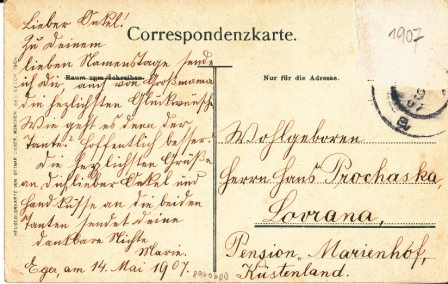 Correspondenzkarte.
1907
Raum zum Schreiben.
Nur für die Adresse.
Lieber Onkel!
Zu Deinem
lieben Namenstage sende
ich Dir, auch von Großmama
die herzlichsten Glückwünsche
Wie geht es denn der
Tante? Hoffentlich besser.
Die herzlichsten Grüße
an Dich lieber Onkel und
Handküsse an die beiden
Tanten sendet Deine
dankbare Nichte
Marie.
Eger, am 14. Mai 1907.
Wohlgeboren
Herrn Hans Prochaska
Lovrana,
Pension „Marienhof,
Küstenland.